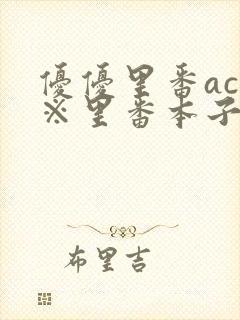 優優里番ac
※里番本子
布里吉